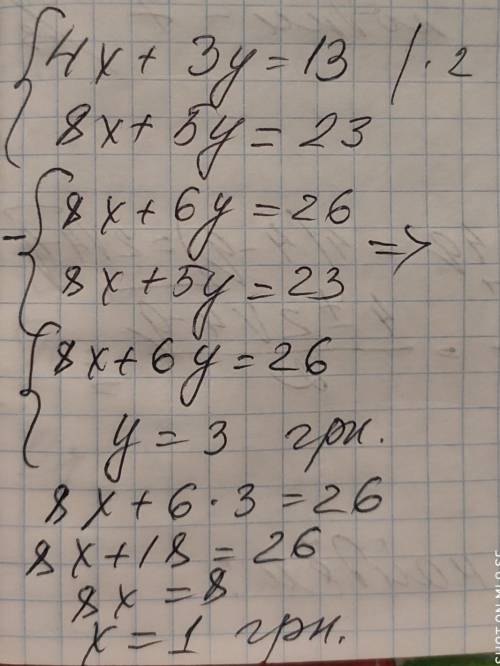 4x + 3y = 13 / · 2
8x + 5y = 23
8x + 6y = 26
- =>
8x + 5y = 23
8x + 6y = 26
y = 3 грн.
8x + 6 · 3 = 26
8x + 18 = 26
8x = 8
x = 1 грн.